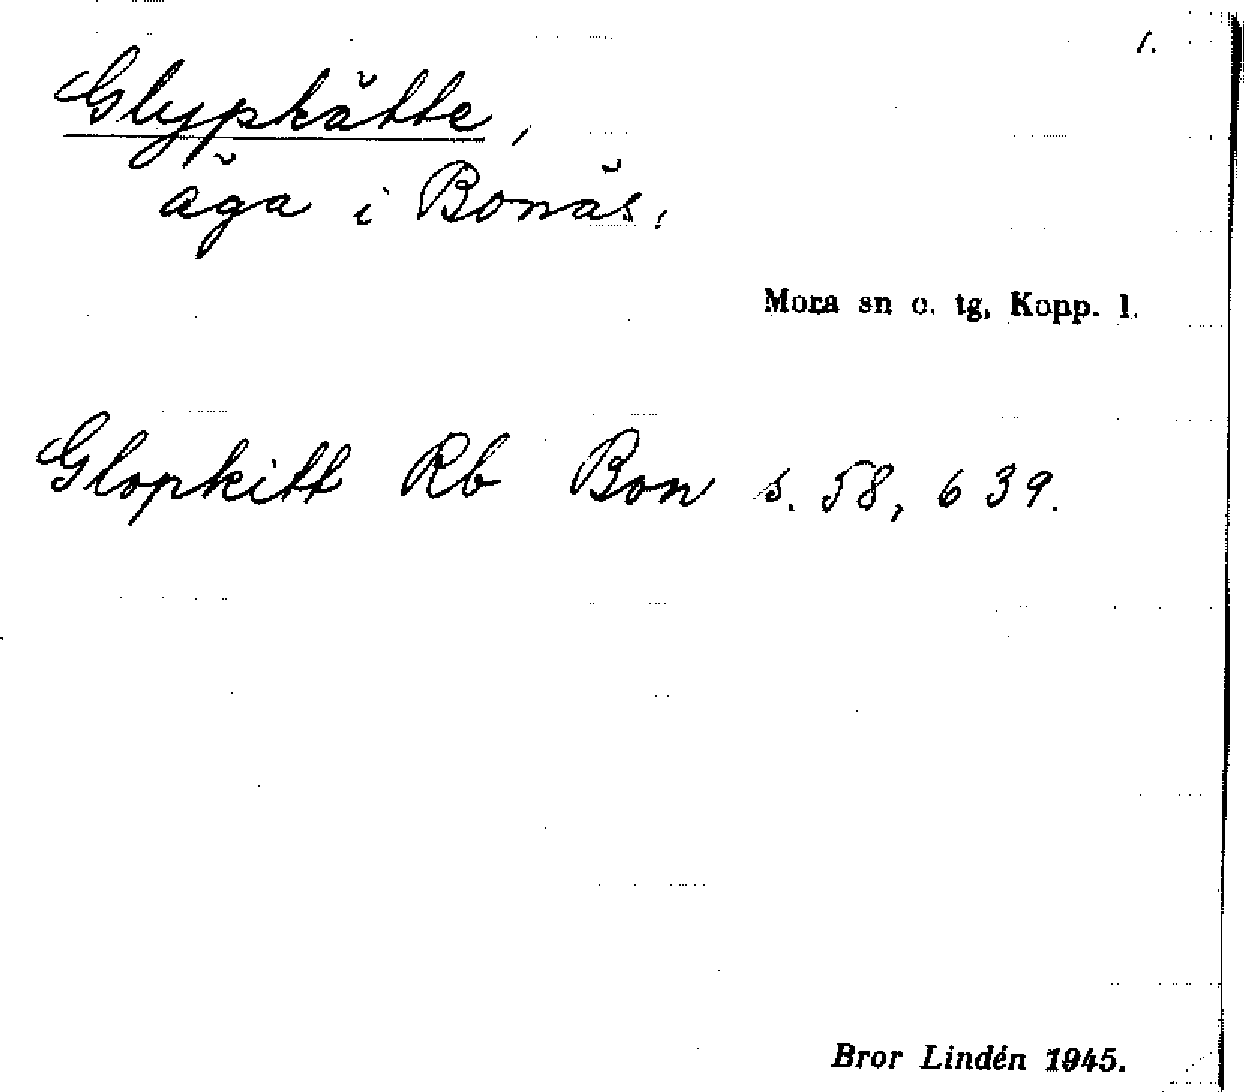 1.
Glypkätte,
äga i Bonäs,
Mora sn o. tg, Kopp. l.
Glopkitt Rb Bon s. 58, 639.
Bror Lindén 1945.